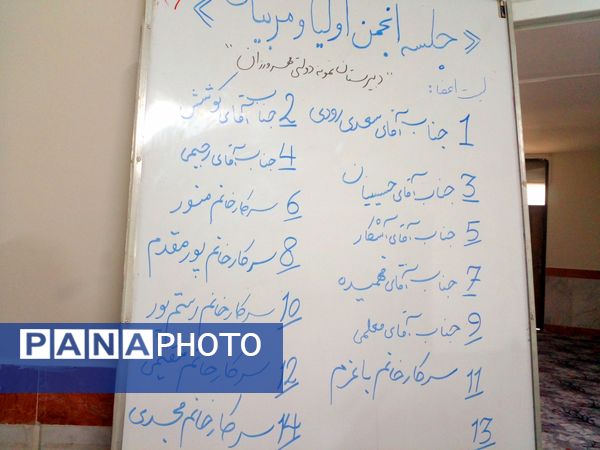 « جلسه انجمن اولیا و مربیان »
"دبیرستان نمونه دولتی
لیست اعضا:
1 جناب آقای سعدی رودی
2 جناب آقای کوشش
3 جناب آقای حسینیان
4 جناب آقای رحیمی
5 جناب آقای آشکار
6 سرکار خانم منور
7 جناب آقای فهمیده
8 سرکار خانم پورمقدم
9 جناب آقای معلمی
10 سرکار خانم رستم پور
11 سرکار خانم باعزم
12 سرکار خانم
13
14 سرکار خانم مجدی
PANAPHOTO